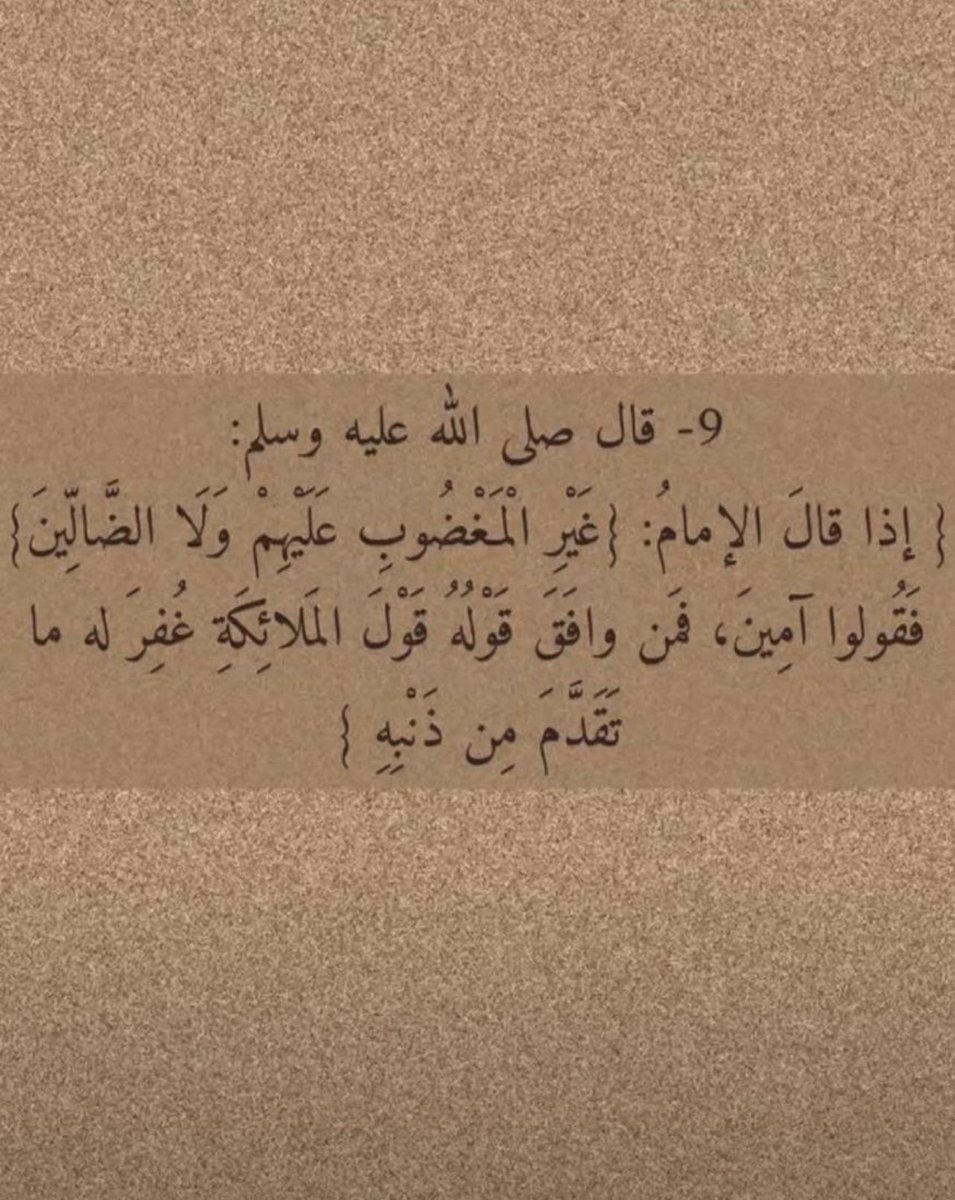 9- قال صلى الله عليه وسلم:
{ إذا قالَ الإمامُ: {غَيْرِ الْمَغْضُوبِ عَلَيْهِمْ وَلَا الضَّالِّينَ}
فَقُولوا آمِينَ، فمَن وافَقَ قَوْلُهُ قَوْلَ المَلائِكَةِ غُفِرَ له ما
تَقَدَّمَ مِن ذَنْبِهِ }